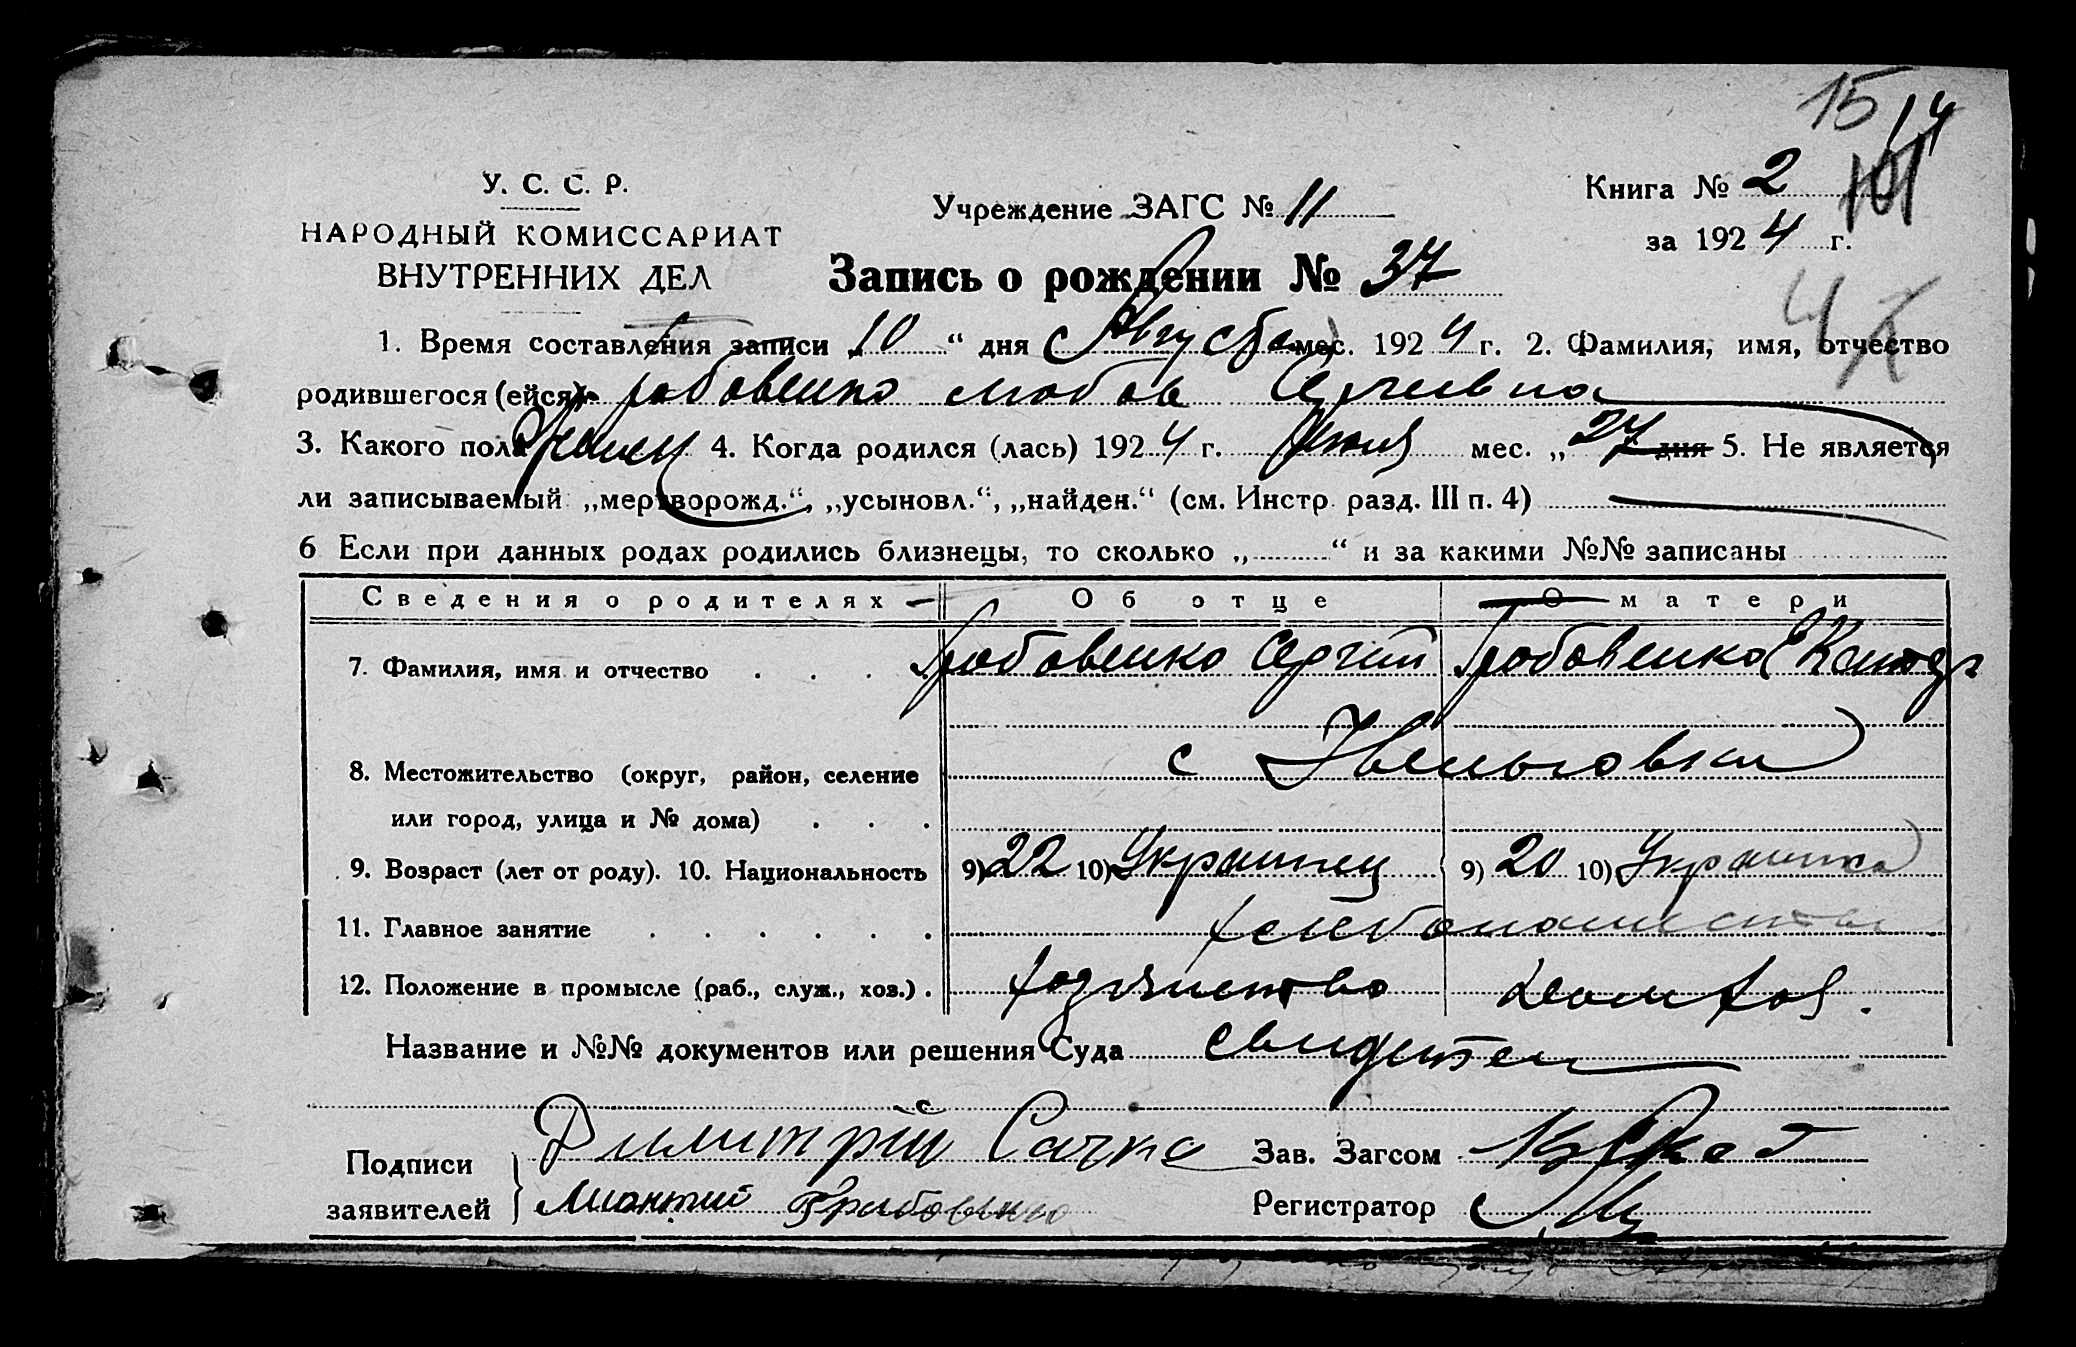 15 14
У. С. С. Р.
НАРОДНЫЙ КОМИССАРИАТ
ВНУТРЕННИХ ДЕЛ
Учреждение ЗАГС № 11
Книга № 2
за 1924 г.
Запись о рождении № 37
4
1. Время составления записи „10“ дня Августа мес. 1924 г. 2. Фамилия, имя, отчество
родившегося (ейся) Грабовенко Любов Сергиевна
3. Какого пола 4. Когда родился (лась) 1924 г. мес. „27 дня 5. Не является
ли записываемый „мертворожд.“, „усыновл.“, „найден.“ (см. Инстр. разд. III п. 4)
6 Если при данных родах родились близнецы, то сколько „ “ и за какими №№ записаны
Сведения о родителях Об отце О матери
7. Фамилия, имя и отчество . . . . Грабовенко Сергий Грабовенко
8. Местожительство (округ, район, селение с
или город, улица и № дома) . . .
9. Возраст (лет от роду). 10. Национальность 9) 22 10) Украинец 9) 20 10) Украинка
11. Главное занятие . . . . . . хлебопашество
12. Положение в промысле (раб., служ., хоз.) . хозяйство Дом хоз.
Название и №№ документов или решения Суда свидетели
Подписи Димитрий Сачко Зав. Загсом
заявителей Грабовенко Регистратор